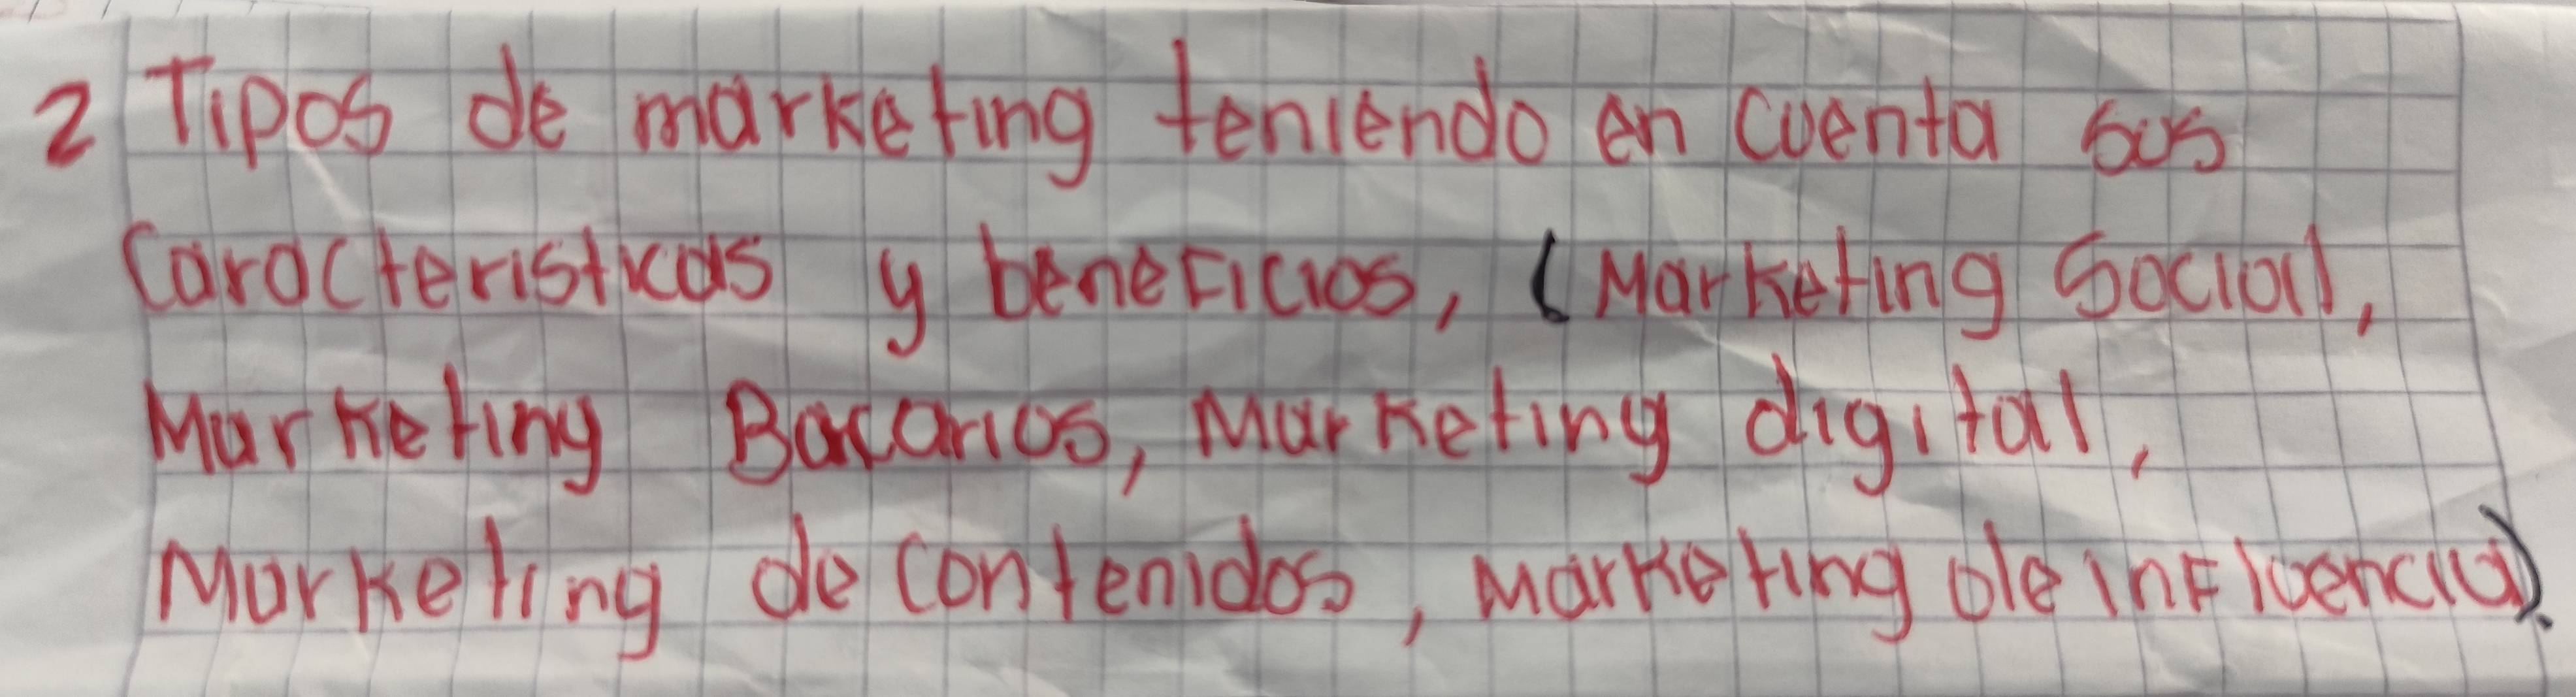 2 Tipos de marketing teniendo en cuenta sus
Caracteristicas y beneficios, (Marketing Social,
Marketing Bacarios, Marketing digital,
Marketing de Contenidos, Marketing de influencia).